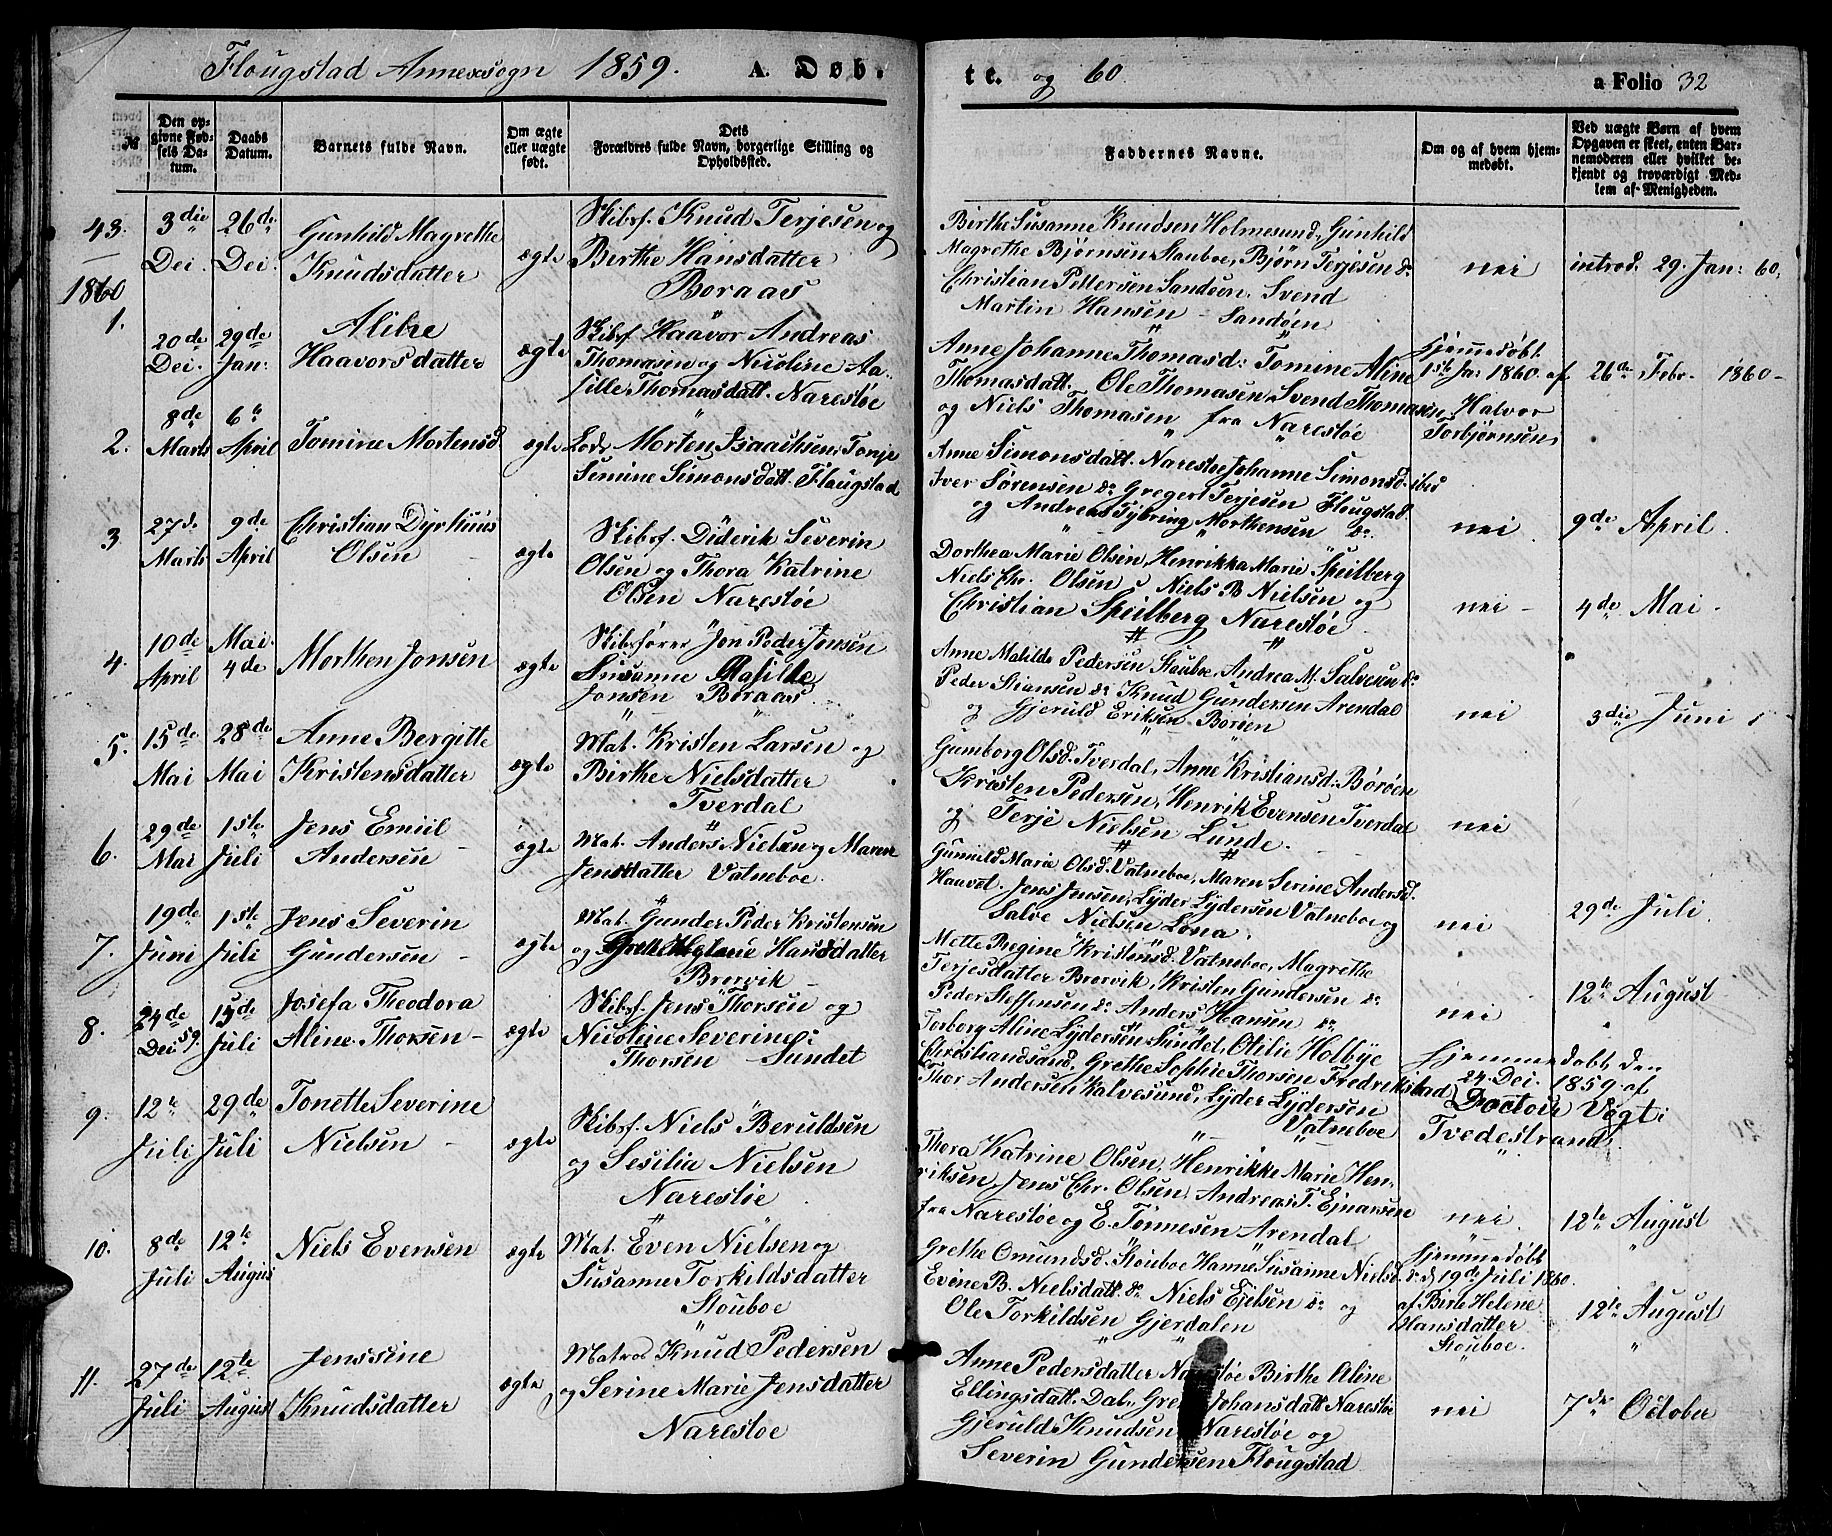 Flougstad Annexsogn 1859. A. Døb-
№
Den op-
givne Fød-
sels Da-
tum.
Daabs
Datum.
Barnets fulde Navn.
Om ægte
eller uægte
født.
Dets
Forældres fulde Navn, borgerlige Stilling og
Opholdssted.
43. 3die Dei. 26de Dei.
Gunhild Magrethe
Knudsdatter
ægte
Skibsf. Knud Terjesen og
Birthe Hansdatter
Boraas
1860
1. 20de Dei. 29de Jan:
Alibre
Haavorsdatter
ægte
Skibsf Haavor Andreas
Thomasen og Nicoline Aa-
sille Thomasdatt. Narestøe
2. 8de Marts 6te April
Tomine Mortensd
ægte
Lods Morten Isaachsen, Tonje
Simine Simonsdatt. Flaugstad
3 27de Marts 9de April
Christian Dyrhuus
Olsen
ægte
Skibsf. Diderik Severin
Olsen og Thora Katrine
Olsen Narestøe
4. 10de April Mai 4de
Morthen Jonsen
ægte
Skibsfører Jon Peder Jonsen
Susanne Matilde
Jonsen Boraas
5. 15de Mai 28de Mai
Anne Bergitte
Kristensdatter
ægte
Mat. Kristen Larsen og
Birthe Nielsdatter
Tverdal
6. 29de Mai 1ste Juli
Jens Emiil
Andersen
ægte
Mat. Anders Nielsen og Maren
Jensdatter Vatneboe.
7. 19de Juni 1ste Juli
Jens Severin
Gundersen
ægte
Mat. Gunder Peder Kristensen
og Grethe Helene Hansdatter
Brorvik
8. 24de Dei 59. 15de Juli
Josefa Theodora
Aline Thorsen
ægte
Skibsf. Jens Thorsen og
Nicoline Severine
Thorsen Sundet
9. 12te Juli 29de Juli
Tonette Severine
Nielsen
ægte
Skibsf. Niels Beruldsen
og Sesilia Nielsen
Narestøe
10. 8de Juli 12te Augus
Niels Evensen
ægte
Mat. Even Nielsen og
Susanne Torkildsdatter
Stouboe
11. 27de Juli 12te August
Jenssine
Knudsdatter
ægte
Matros Knud Pedersen
og Serine Marie Jensdatter
Narestøe
te. og 60. a Folio 32
Faddernes Navne.
Om og af hvem hjem-
medøbt.
Ved uægte Børn af hvem
Opgaven er skeet, enten Bar-
nemoderen eller hvilket be-
kjendt og troværdigt Med-
lem af Menigheden.
Birthe Susanne Knudsen Holmesund, Gunhild
Magrethe Bjørnsen Stauboe, Bjørn Terjesen do
Christian Pettersen Sandøen. Svend
Martin Hansen - Sandøen
nei
introd. 29. Jan: 60.
Anne Johanne Thomasd: Tomine Aline
Thomasdatt. Ole Thomasen, Svend Thomasen
og Niels Thomasen fra Narestøe
Hjemmedøbt
1ste Ja: 1860. af
Halvor
Torbjørnsen
26de Febr. 1860
Anne Simonsdatt. Narestøe, Johanne Simonsd. ibid
Iver Sørensen do Gregert Terjesen Flougstad
og Andreas Tybring Morthensen do.
nei
9de April.
Dorthea Marie Olsen, Henrikka Marie Speilberg
Niels Chr. Olsen, Niels B Nielsen og
Christian Speilberg Narestøe
nei
4de Mai
Anne Matilde Pedersen Stauboe, Andrea M. Salvesen do
Peder Stiansen do Knud Gundersen Arendal
og Gjeruld Eriksen Borøen
nei
3die Juni
Gumborg Olsd. Tverdal, Anne Kristiansd. Børøen
Kristen Pedersen, Henrik Evensen Tverdal
og Terje Nielsen Lunde.
nei
Gunild Marie Olsd. Vatneboe, Maren Serine Andersd.
Haavet. Jens Jensen, Lyder Lydersen Vatneboe og
Salve Nielsen Lona.
nei
29de Juli
Mette Regine Kristensd. Vatneboe, Magrethe
Terjesdatter Brorvik, Kristen Gundersen do
Peder Steffensen do Anders Hansen do
nei
12te August
Torborg Aline Lydersen Sundet, Otilie Holbye
Christiandsand, Grethe Sophie Thorsen Fredrikstad
Thor Andersen Kalvesund, Lyder Lydersen
Vatneboe
Hjemmedøbt den
24. Dei. 1859 af
Doctor Vogt
Tvedestrand
Thora Katrine Olsen, Henrikke Marie Hen-
riksen, Jens Chr. Olsen, Andreas T. Ejnarsen
fra Narestøe og E. Tønnesen Arendal
nei
12te August
Grethe Omundsd. Stouboe Hanne Susanne Nielsd. do
Evine B. Nielsdatt. do Niels Ejelsen do og
Ole Torkildsen Gjerdalen
Hjemmedøbt
d. 19de Juli 1860.
af Birte Helene
Hansdatter
Stouboe.
12te August
Anne Pedersdatter Narestøe Birthe Oline
Ellingsdatt. Dal, Johansdatt Narestøe
Gjeruld Knudsen Narestøe og
Severin Gundersen Flougstad
nei
7de October